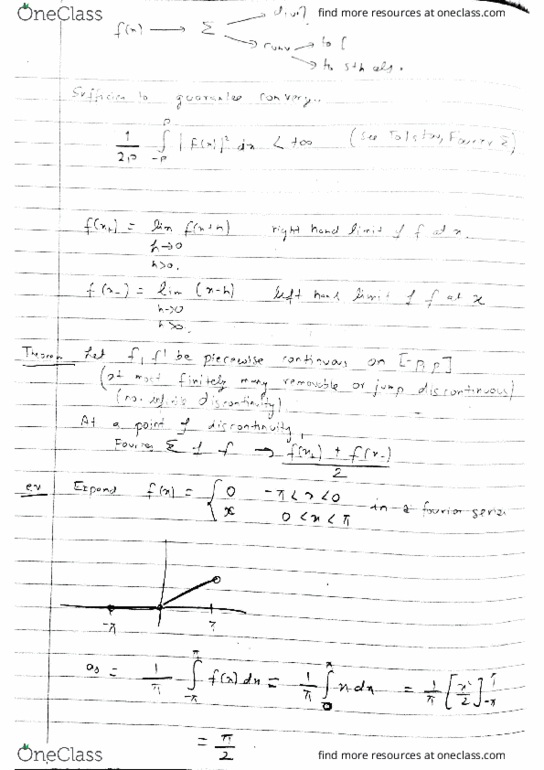 OneClass find more resources at oneclass.com
f(x) → Σ
→ to f
→ to sth els.
Sufficien to guarantee converg..
1/2p ∫_{-p}^{p} |f(x)|² dx < +∞ (see Tolstov, Fourier Σ)
f(x₊) = lim f(x+h) right hand limit of f at x.
h→0
h>0.
f(x₋) = lim (x-h) left hand limit of f at x
h→0
h>0.
Theorem Let f, f' be piecewise continuous on [-p, p]
(at most finitely many removable or jump discontinuous)
(no infinite discontinuity)
At a point of discontinuity,
Fourier Σ of f → (f(x₊) + f(x₋))/2
ex Expand f(x) = { 0 -π<x<0
x 0<x<π in a fourier serie
-π π
a₀ = 1/π ∫_{-π}^{π} f(x) dx = 1/π ∫_{0}^{π} x dx = 1/π [x²/2]_{-π}^{π}
= π/2
OneClass find more resources at oneclass.com